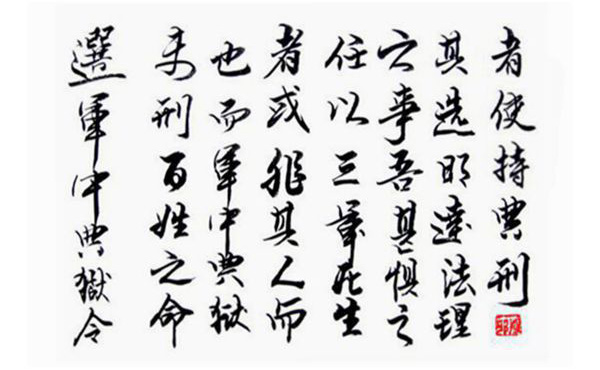 選軍中典獄令
夫刑百姓之命
也而軍中典狱
者或非其人而
任以三軍死生
之事吾甚惧之
其选明達法理
者使持典刑